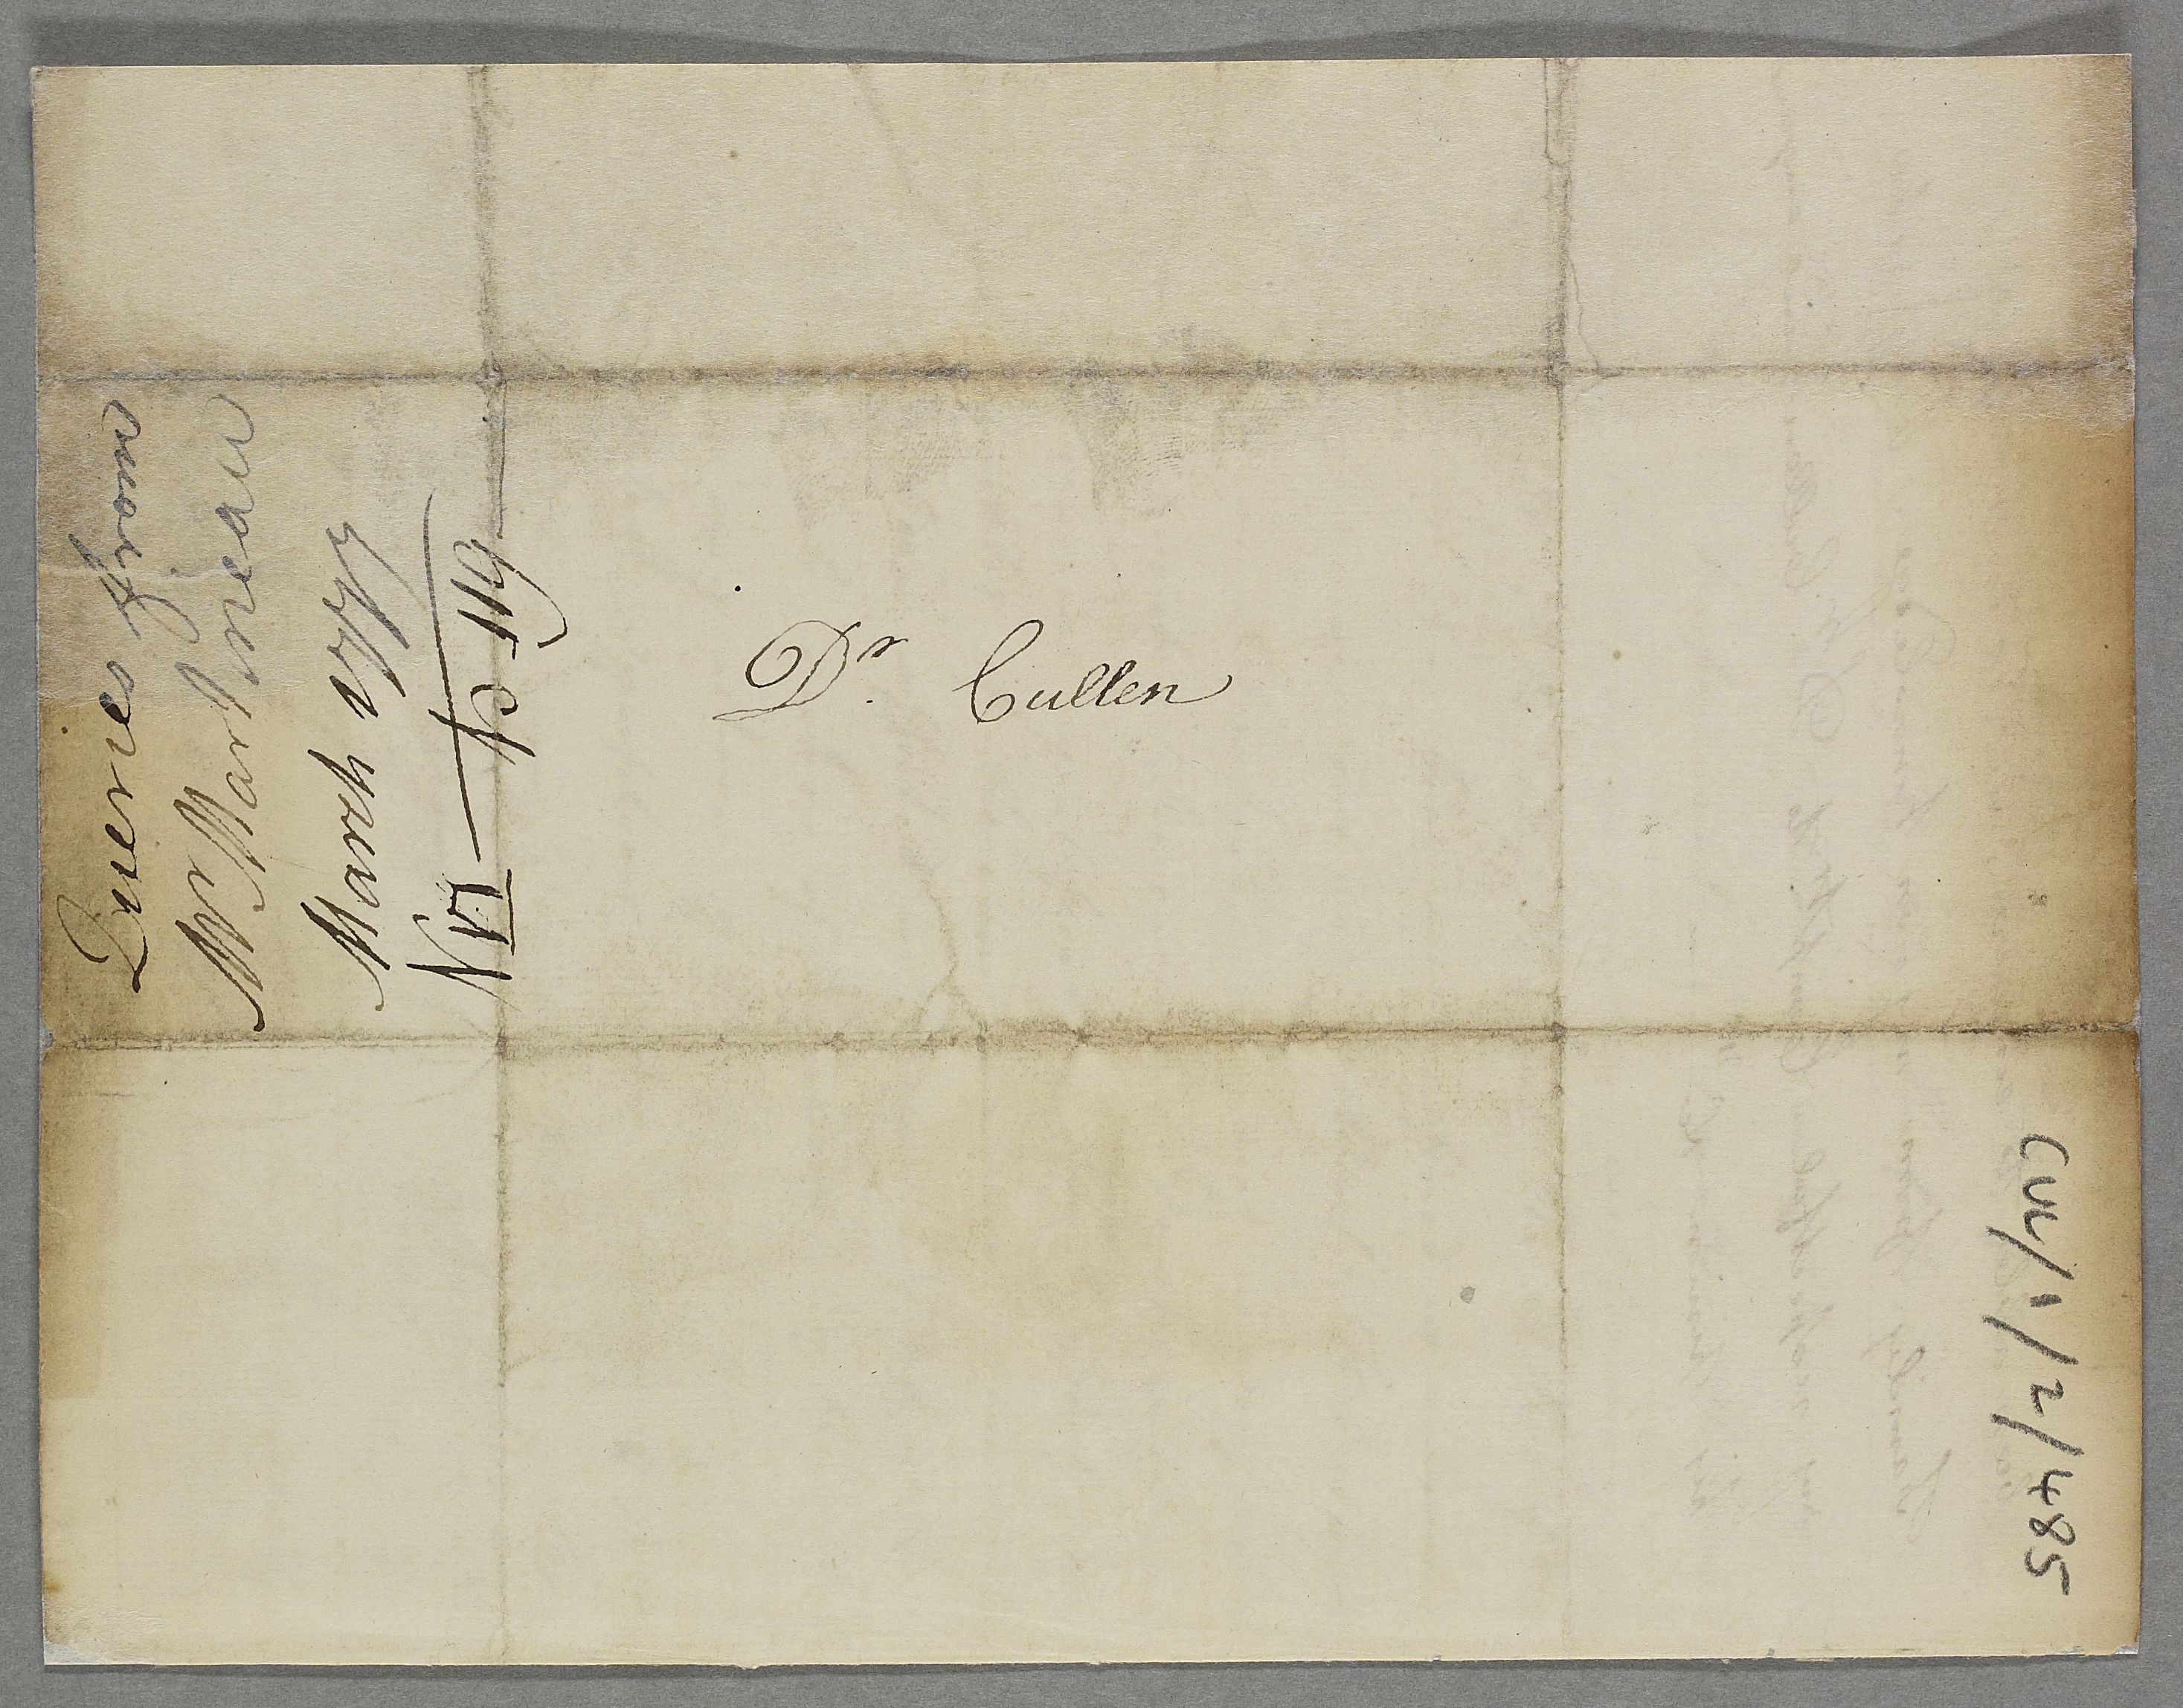 Queries from
Mr Martineau
March 1777
N VI p 119
Dr. Cullen
CUL/1/2/485